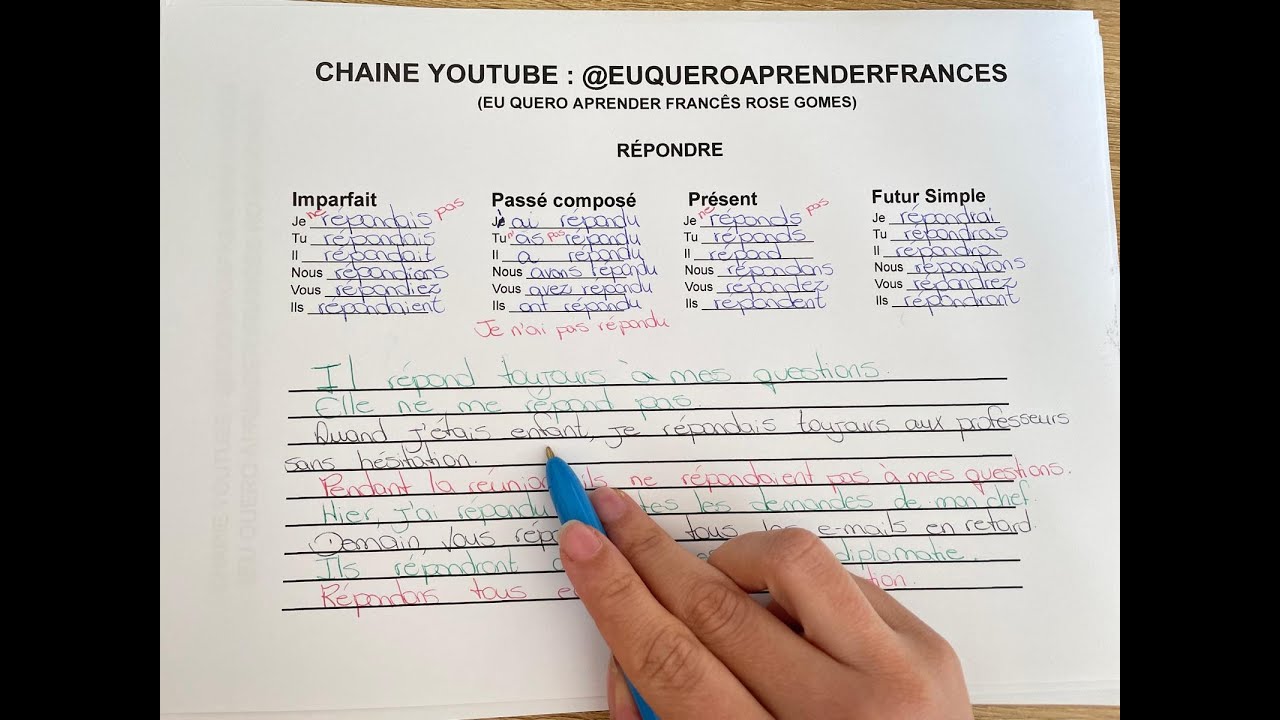 CHAINE YOUTUBE : @EUQUEROAPRENDERFRANCES
(EU QUERO APRENDER FRANCÊS ROSE GOMES)
RÉPONDRE
Imparfait
Je ne répondais pas
Tu répondais
Il répondait
Nous répondions
Vous répondiez
Ils répondaient
Passé composé
J'ai répondu
Tu n'as pas répondu
Il a répondu
Nous avons répondu
Vous avez répondu
Ils ont répondu
Je n'ai pas répondu
Présent
Je ne réponds pas
Tu réponds
Il répond
Nous répondons
Vous répondez
Ils répondent
Futur Simple
Je répondrai
Tu répondras
Il répondra
Nous répondrons
Vous répondrez
Ils répondront
Il répond toujours à mes questions.
Elle ne me répond pas.
Quand j'étais enfant, je répondais toujours aux professeurs
sans hésitation.
Pendant la réunion ils ne répondaient pas à mes questions.
Hier, j'ai répondu les demandes de mon chef.
Demain, vous tous les e-mails en retard.
Ils répondront diplomatie.
Répondons tous